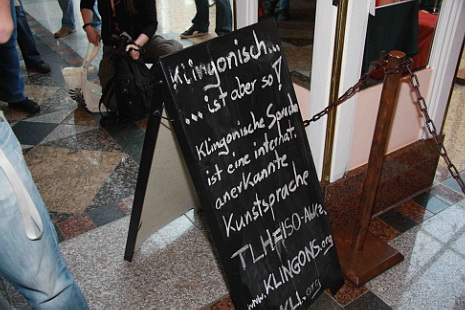 Klingonisch...
...ist aber so!
Klingonische Sprache
ist eine internat.
anerkannte
Kunstsprache
TLH=ISO-
www.KLINGONS.org
KLI.org